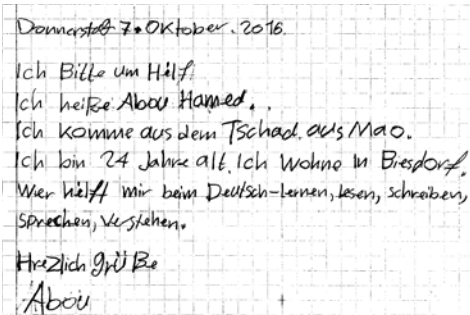 Donnerstag 7. Oktober. 2016.
Ich Bitte um Hilf
Ich heiße Abou Hamed..
Ich komme aus dem Tschad. aus Mao.
Ich bin 24 Jahre alt. Ich Wohne in Biesdorf.
Wer hilft mir beim Deutsch-Lernen, lesen, schreiben,
sprechen, verstehen.
Herzlich grüße
Abou